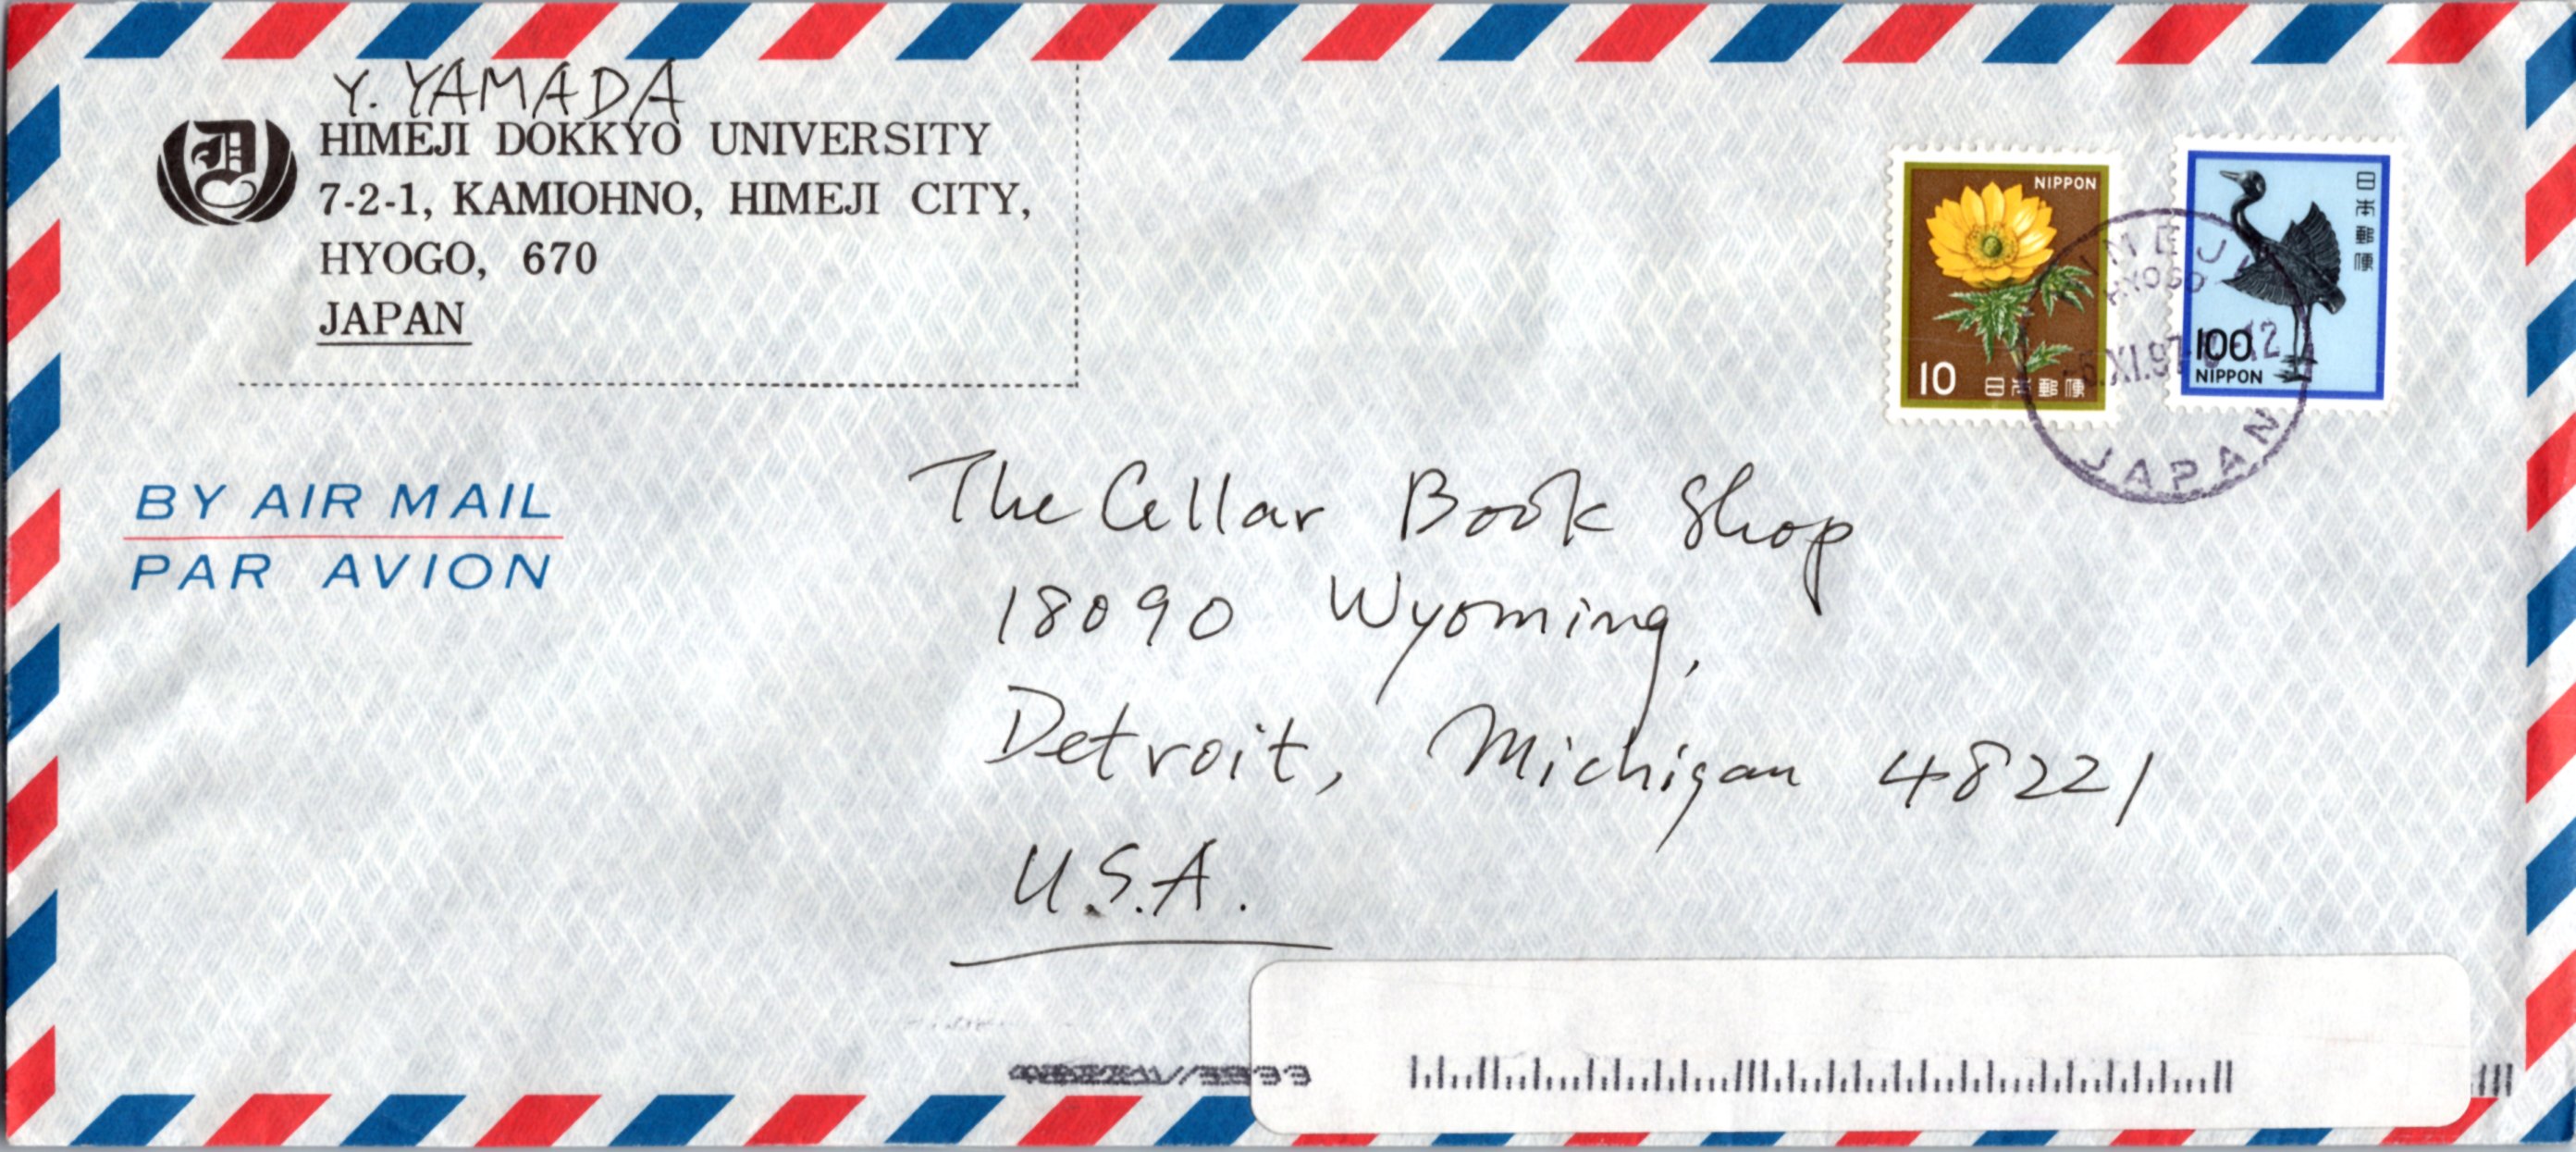 Y. YAMADA
HIMEJI DOKKYO UNIVERSITY
7-2-1, KAMIOHNO, HIMEJI CITY,
HYOGO, 670
JAPAN
D
NIPPON
10 日本郵便
日本郵便
100
NIPPON
HYOGO
XI.97
JAPAN
BY AIR MAIL
PAR AVION
The Cellar Book Shop
18090 Wyoming,
Detroit, Michigan 48221
U.S.A.